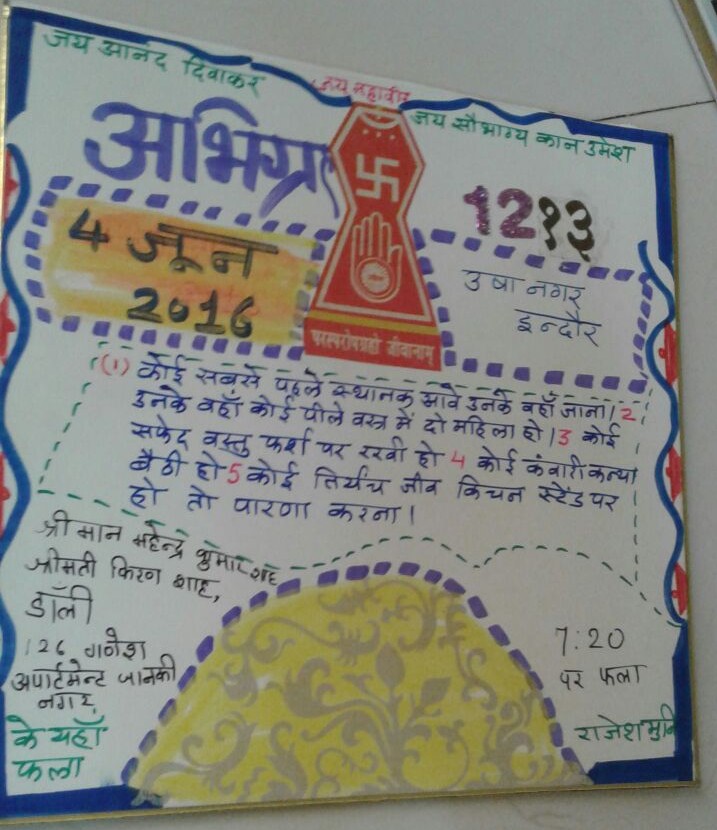 जय आनंद दिवाकर
जय महावीर
जय सौभाग्य कान उमेश
अभिग्रह
12१३
4 जून
2016
उषा नगर
इन्दौर
परस्परोपग्रहो जीवानाम्
(1) कोई सबसे पहले स्थानक आवे उनके वहाँ जाना। 2
उनके वहाँ कोई पीले वस्त्र में दो महिला हो। 3 कोई
सफेद वस्तु फर्श पर रखी हो 4 कोई कंवारी कन्या
बैठी हो 5 कोई तिर्यंच जीव किचन स्टेंड पर
हो तो पारणा करना।
श्रीमान महेन्द्र कुमार शाह
श्रीमती किरण शाह,
डॉली
126 गणेश
अपार्टमेन्ट जानकी
नगर,
के यहाँ
फला
7:20
पर फला
राजेश मुनि